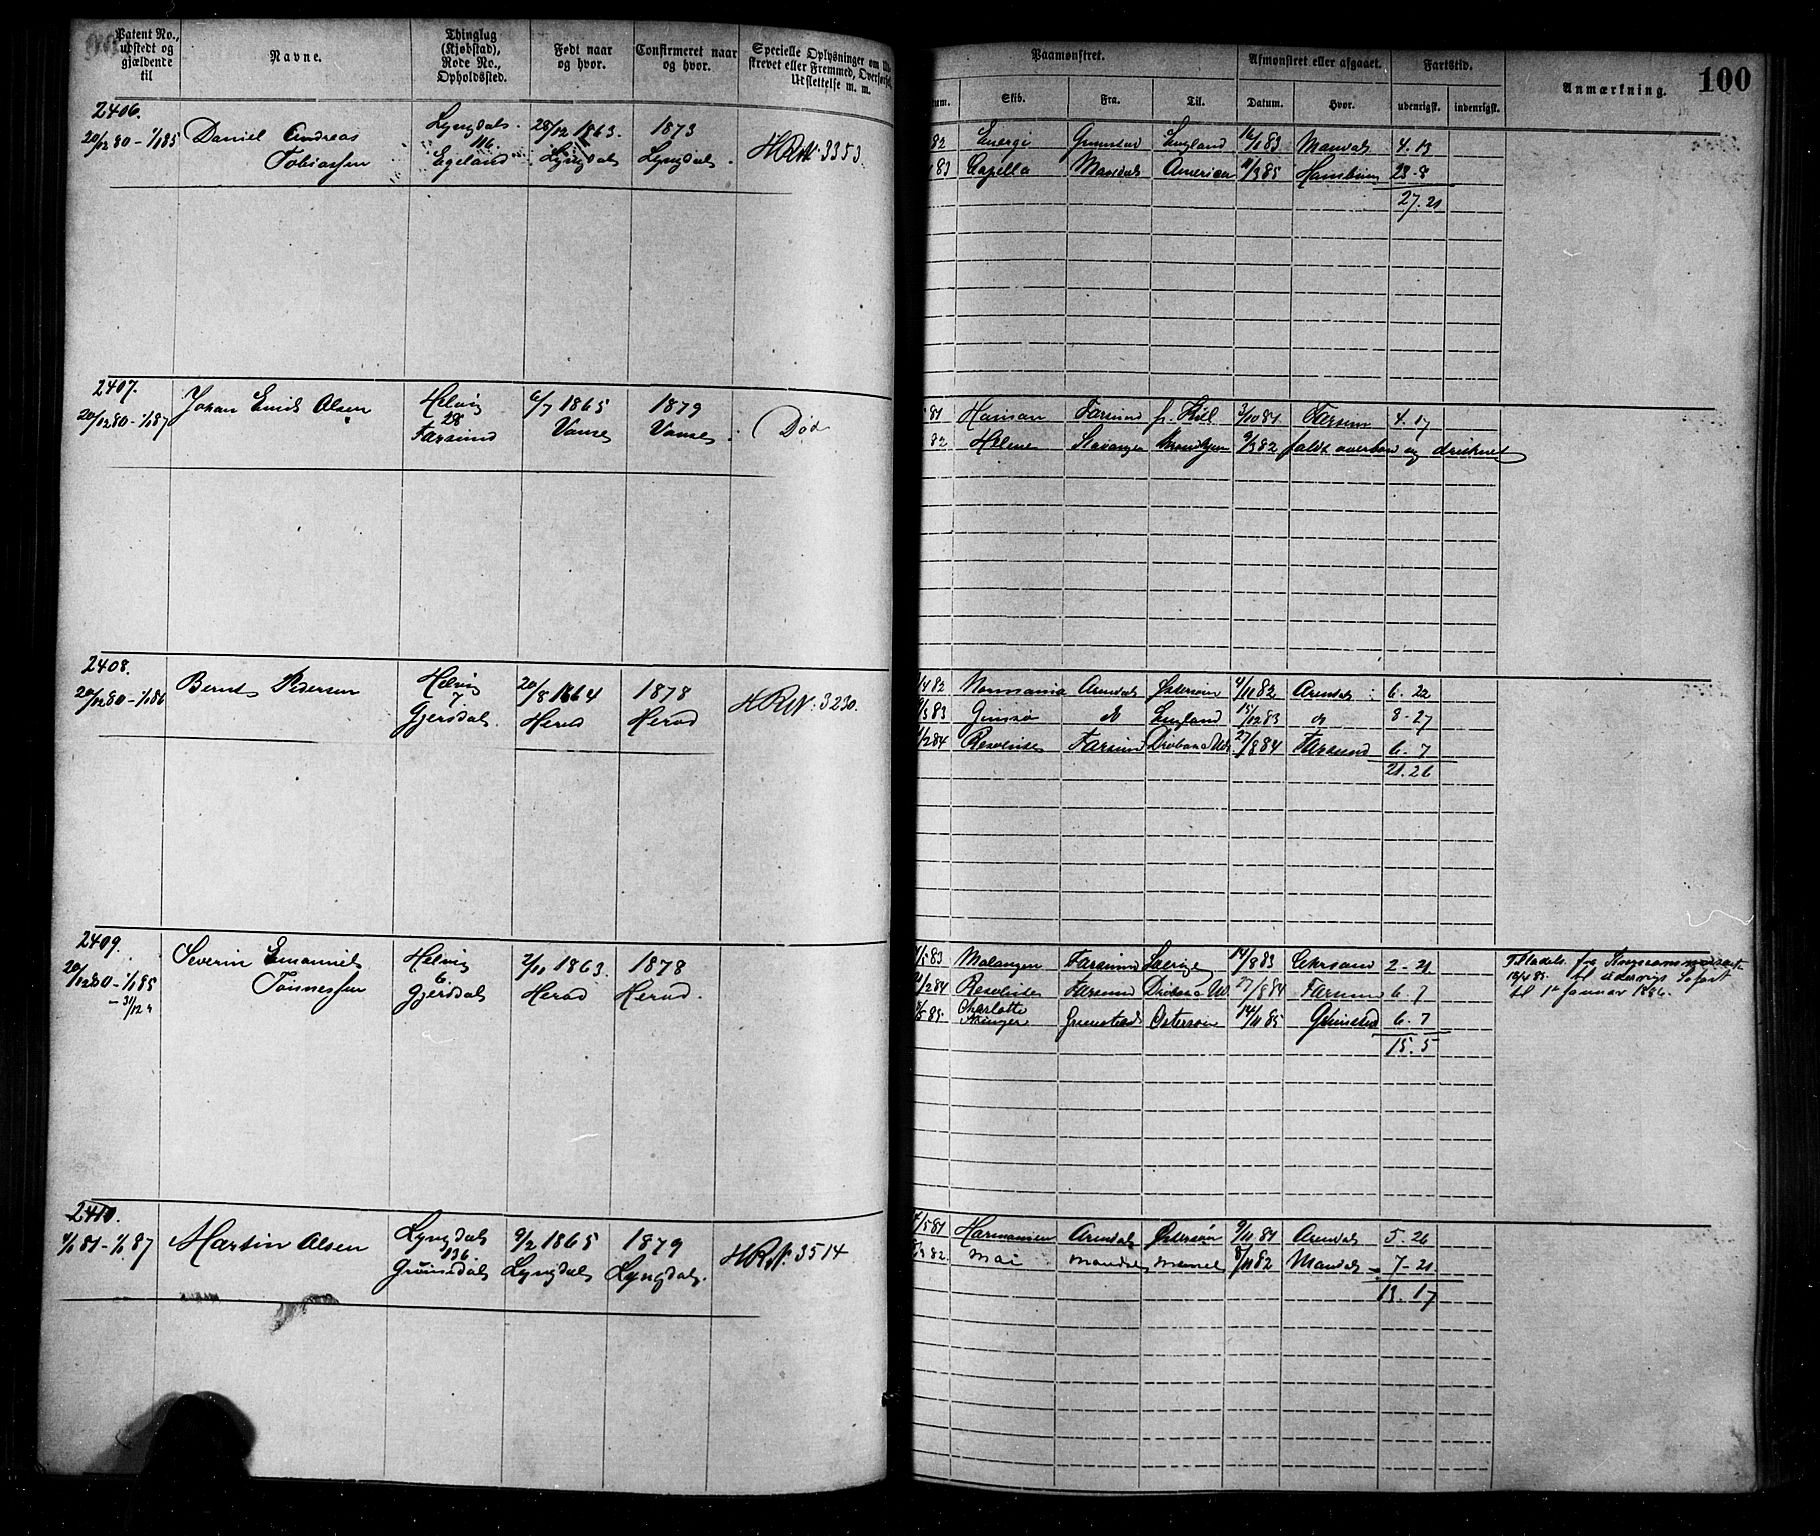 Patent No., udstedt og gjældende til
Navne.
Thinglag (Kjøbstad), Rode No., Opholdssted.
Født naar og hvor.
Confirmeret naar og hvor.
Specielle Oplysninger om
Udslettelse m. m.
Paamønstret.
Afmønstret eller afgaaet.
Fartstid.
Anmærkning.
100
Skib.
Fra.
Til.
Datum.
Hvor.
udenrigsk.
indenrigsk.
2406.
20/12 80 - 1/1 85
Daniel Andreas
Tobiassen
Lyngdals
116
Egeland
28/12 1863.
Lyngdal
1873
Lyngdal
HRN 3353.
82 Energi Grimstad England 16/11 83 Mandal 4. 13
83 Capella Mandal America 11/3 85 Hamburg 23-8
27. 21
2407.
20/12 80 - 1/1 87
Johan Emil Olsen
Helvig
28
Farsund
6/7 1865
Vanse
1879
Vanse
Død
81 Hansan Farsund Kiel 3/10 81 Farsun 4. 17
82 Helene Stavanger 9/3 82 faldt overbord og druknet
2408.
20/12 80 - 1/1 86
Bernt Pedersen
Helvig
7
Gjersdal.
20/8 1864
Herad
1878
Herad
HRN. 3230.
4 82 Normania Arendal Østersøen 4/11 82 Arendal 6. 22
3 83 Gimsø do England 15/12 83 do 8-27
2 84 Resolution Farsund 27/8 84 Farsund 6. 7
21. 26
2409.
20/12 80 - 1/1 85
- 31/12 "
Severin Emanuel
Tønnessen
Helvig
6
Gjersdal
2/11 1863.
Herad
1878
Herad.
5 83 Malangen Farsund Sverige 14/8 83 Chrsand 2-21
2 84 Resolution Farsund 27/8 84 Farsund 6. 7
5 85. Charlotte Grimstad Østersøen 14/11 85 Grimstad 6. 7
15. 5
Tilladels. fra
15/4 85. til udenrigs Søfart
til 1ste Januar 1886.
2410.
1/1 81 - 1/1 87
Martin Olsen
Lyngdal
136
9/2 1865
Lyngdal
1879
Lyngdal.
HRN. 3514
5 81 Arendal Østersøen 9/11 81 Arendal 5. 26
82. Mai Mandal 8/11 82 Mandal 7-21
13. 17